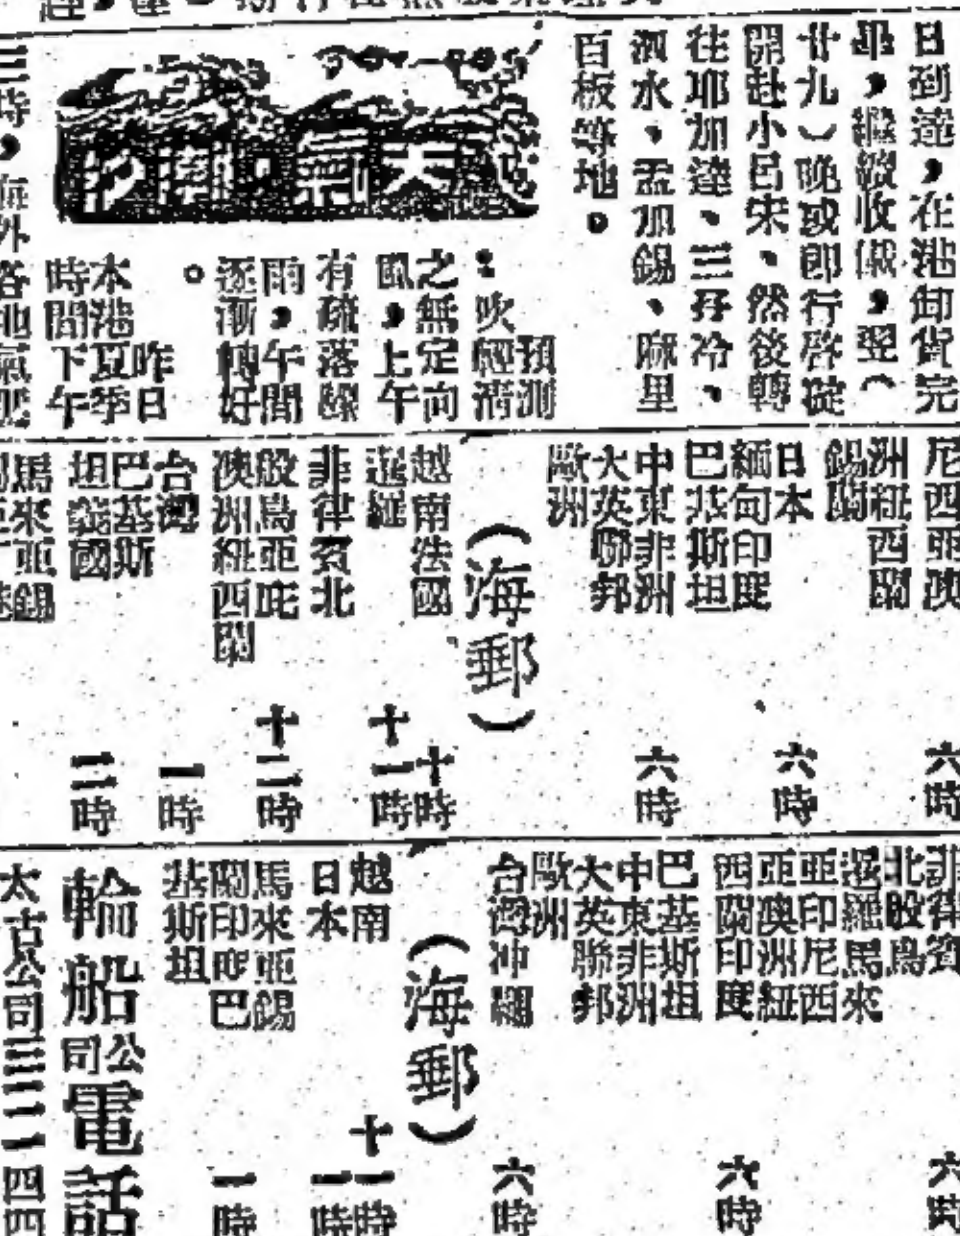 日到達，在港卸貨完
畢，繼續收儎，翌（
廿九）晚或即行啓碇
開赴小呂宋、然後轉
往耶加達、三孖冷、
泗水、孟加錫、麻里
百板等地。
天氣·潮汐
預測
：吹輕清
之無定向
風，上午
有疏落驟
雨，午間
逐漸轉好
。
昨日
本港夏季
時間下午
三時，海外各地氣壓
尼西亞澳
洲紐西蘭
錫蘭
六時
日本
緬甸印度
六時
巴基斯坦
中東非洲
大英聯邦
歐洲
六時
（海郵）
越南法國
十時
暹羅
十一時
非律賓北
般鳥亞庇
澳洲紐西蘭
十二時
台灣
一時
巴基斯
坦義國
二時
馬來亞錫
菲律賓
北般鳥
暹羅馬來
亞印尼西
亞澳洲紐
西蘭印度
六時
六時
巴基斯坦
中東非洲
大英聯邦
歐洲
台灣冲繩
六時
（海郵）
越南
十一時
日本
一時
馬來亞錫
蘭印度巴
基斯坦
一時
輪船公司電話
太古公司三一一四四